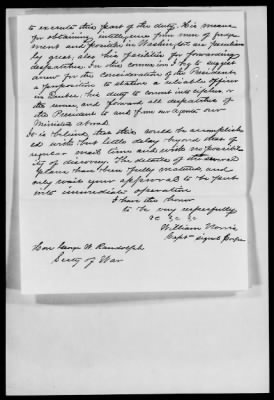 to execute this part of the duty. His means
for obtaining intelligence from men of judge-
ment and position in Washington are peculiarly
great, also his facilities for forwarding
despatches. In this connexion I beg to suggest
for the consideration of the President
a proposition to station a reliable officer
in Europe, his duty to convert into cipher, or
the reverse, and forward all despatches of
the President to and from our Agents and
Ministers abroad.
It is believed that this could be accomplish-
ed with but little delay beyond that of
regular mail time and with no possibil-
ity of discovery. The details of the
plans have been fully matured and
only await your approval to be put
into immediate operation
I have the honor
to be very respectfully
&c &c &c
William Norris
Capt Signal Corps
Hon George W. Randolph
Secty of War